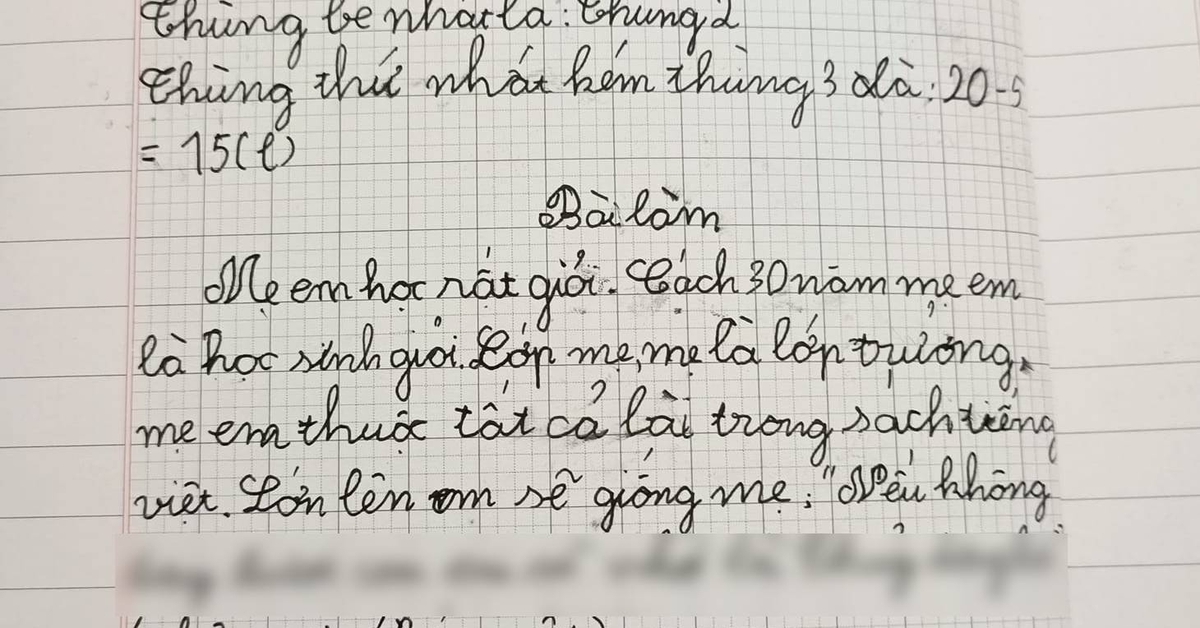 thùng bé nhất là: thùng 2
Thùng thứ nhất kém thùng 3 là: 20-5
= 15(l)
Bài làm
Mẹ em học rất giỏi. Cách 30 năm mẹ em
là học sinh giỏi. Lớp mẹ, mẹ là lớp trưởng,
mẹ em thuộc tất cả bài trong sách tiếng
việt. Lớn lên em sẽ giống mẹ: "Nếu không